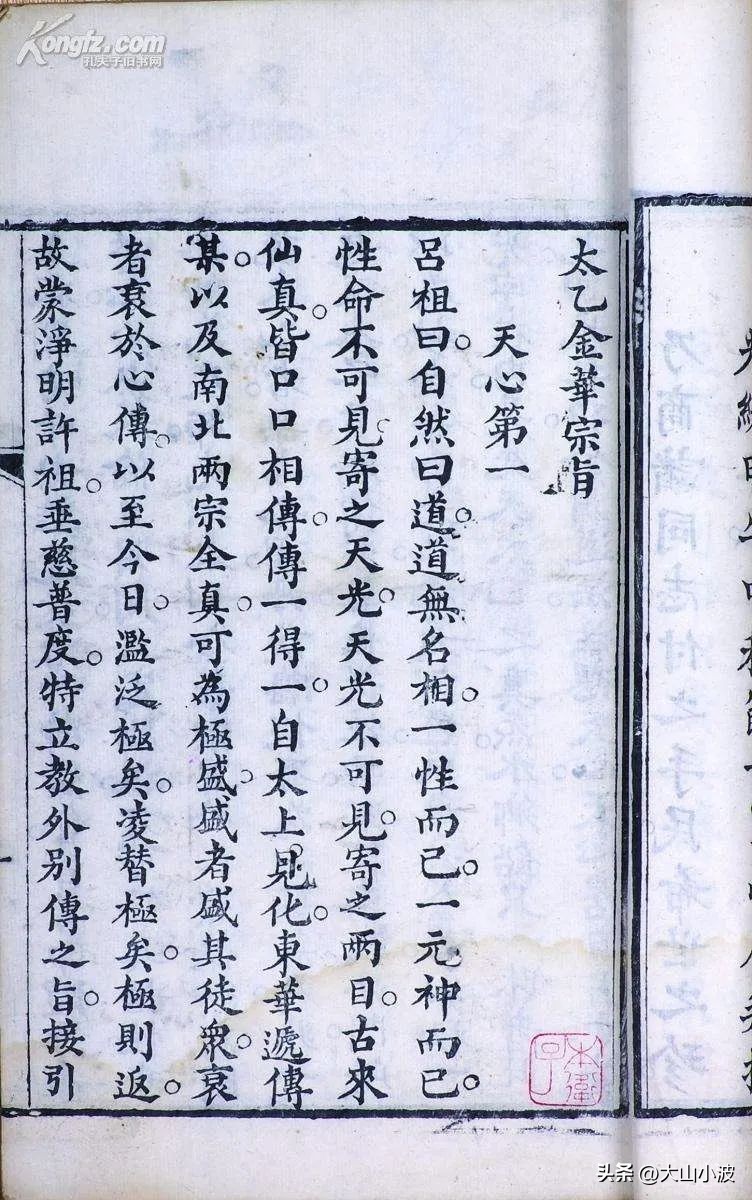 Kongfz.com
孔夫子旧书网
太乙金華宗旨
天心第一
呂祖曰。自然曰道。道無名相。一性而已。一元神而已。
性命不可見。寄之天光。天光不可見。寄之兩目。古來
仙真。皆口口相傳。傳一得一。自太上見化。東華遞傳
某。以及南北兩宗。全真可為極盛。盛者盛其徒衆。衰
者衰於心傳。以至今日。濫泛極矣。凌替極矣。極則返。
故蒙淨明許祖。垂慈普度。特立教外別傳之旨。接引
头条 @大山小波